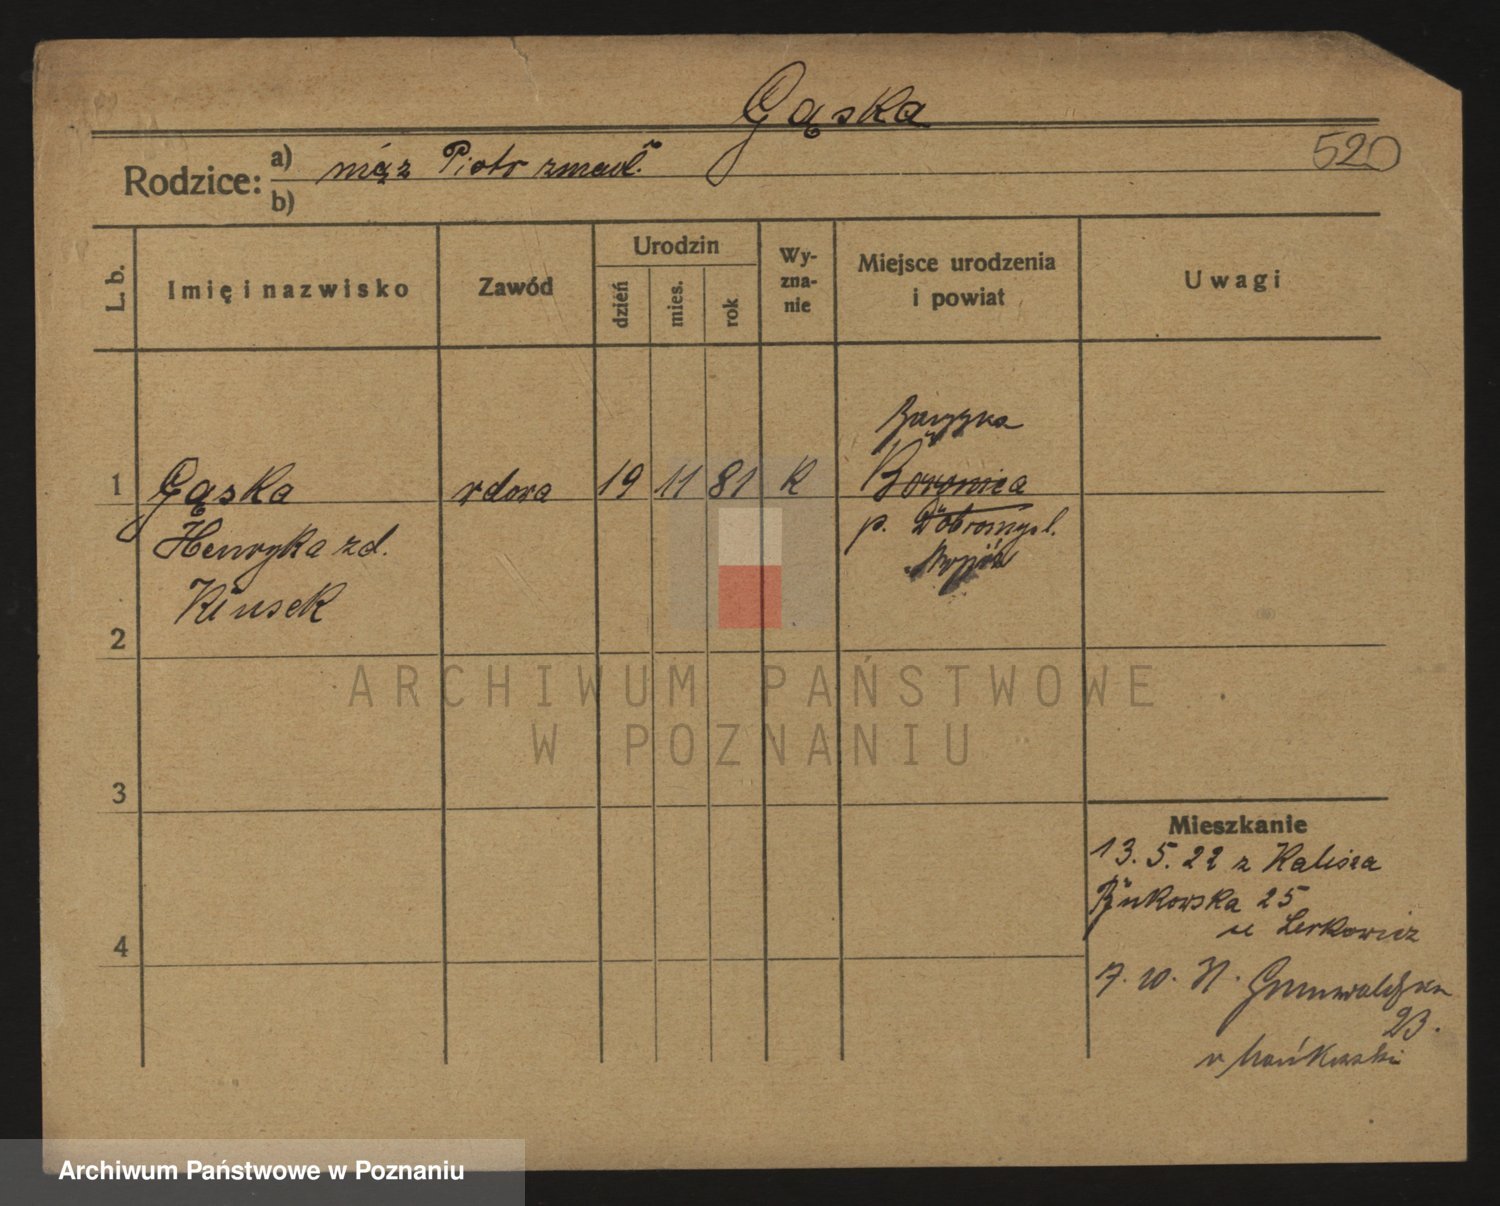 Gąska
520
Rodzice: a) mąż Piotr zmarł.
b)
L. b.
Imię i nazwisko
Zawód
Urodzin
dzień
mies.
rok
Wy-
zna-
nie
Miejsce urodzenia
i powiat
Uwagi
1
Gąska
wdowa
19
11
81
K
Borynica
Henryka zd.
p. Dobromyśl.
Klusek
2
3
4
Mieszkanie
13. 5. 22 z Kalisza
Bukowska 25
u Lerkowicz
7. 10.
Grunwaldzka
23.
u Mańkowski
ARCHIWUM PAŃSTWOWE
W POZNANIU
Archiwum Państwowe w Poznaniu